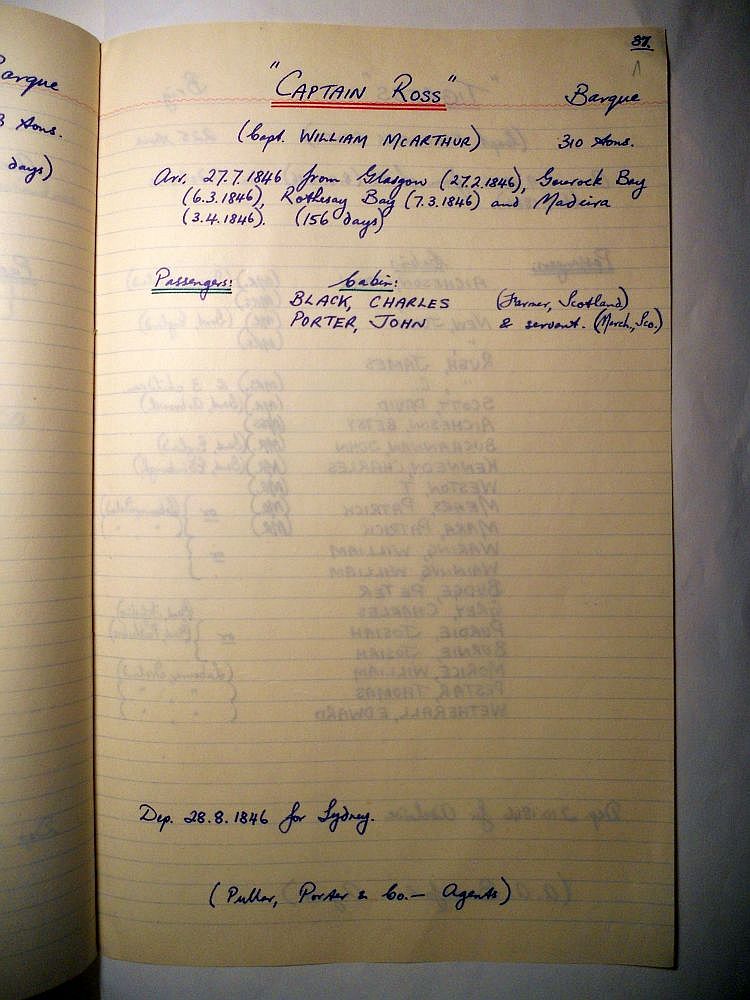 arque
tons.
days)
37.
"CAPTAIN ROSS" Barque
(Capt. WILLIAM McARTHUR) 310 tons.
Arr. 27.7.1846 from Glasgow (27.2.1846), Gourock Bay
(6.3.1846), Rothesay Bay (7.3.1846) and Madeira
(3.4.1846). (156 days)
Passengers: Cabin:
BLACK, CHARLES (Farmer, Scotland)
PORTER, JOHN & servant. (Merch., Sco.)
Dep. 28.8.1846 for Sydney.
(Pullar, Porter & Co. — Agents)